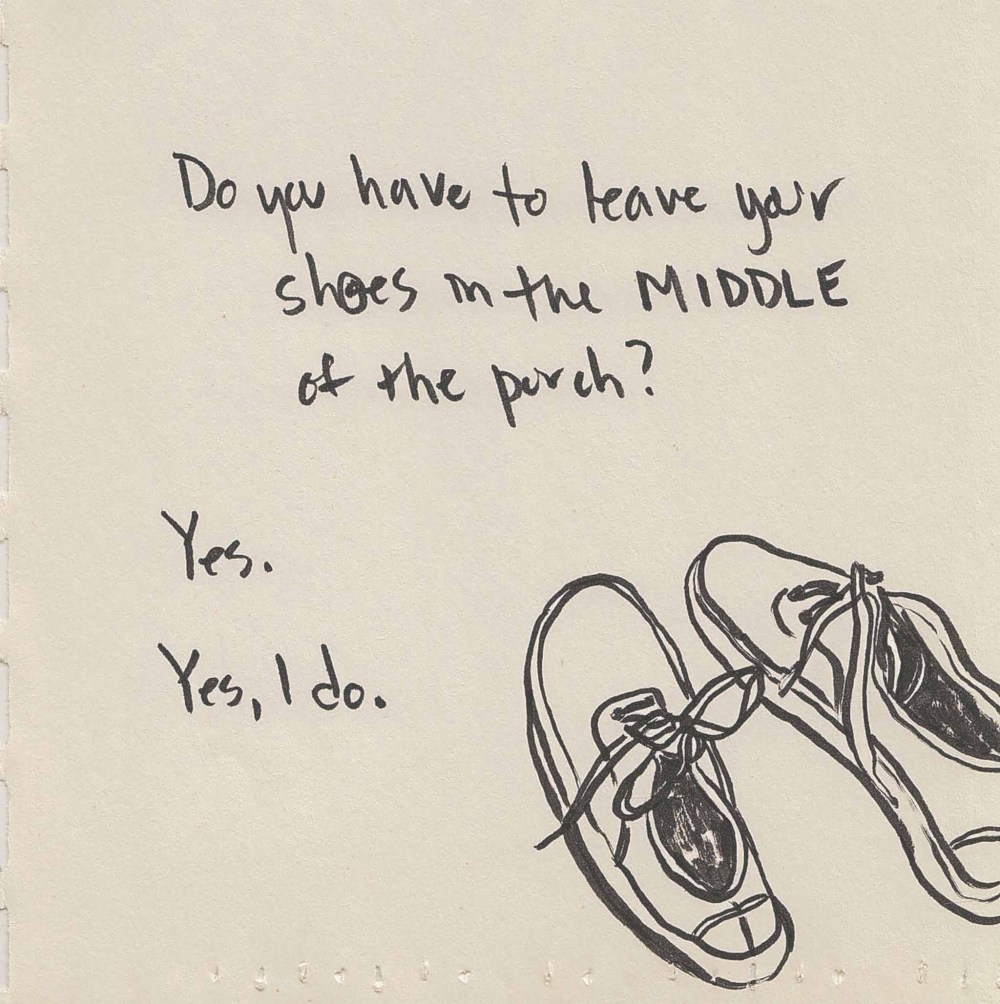 Do you have to leave your
shoes in the MIDDLE
of the porch?
Yes.
Yes, I do.